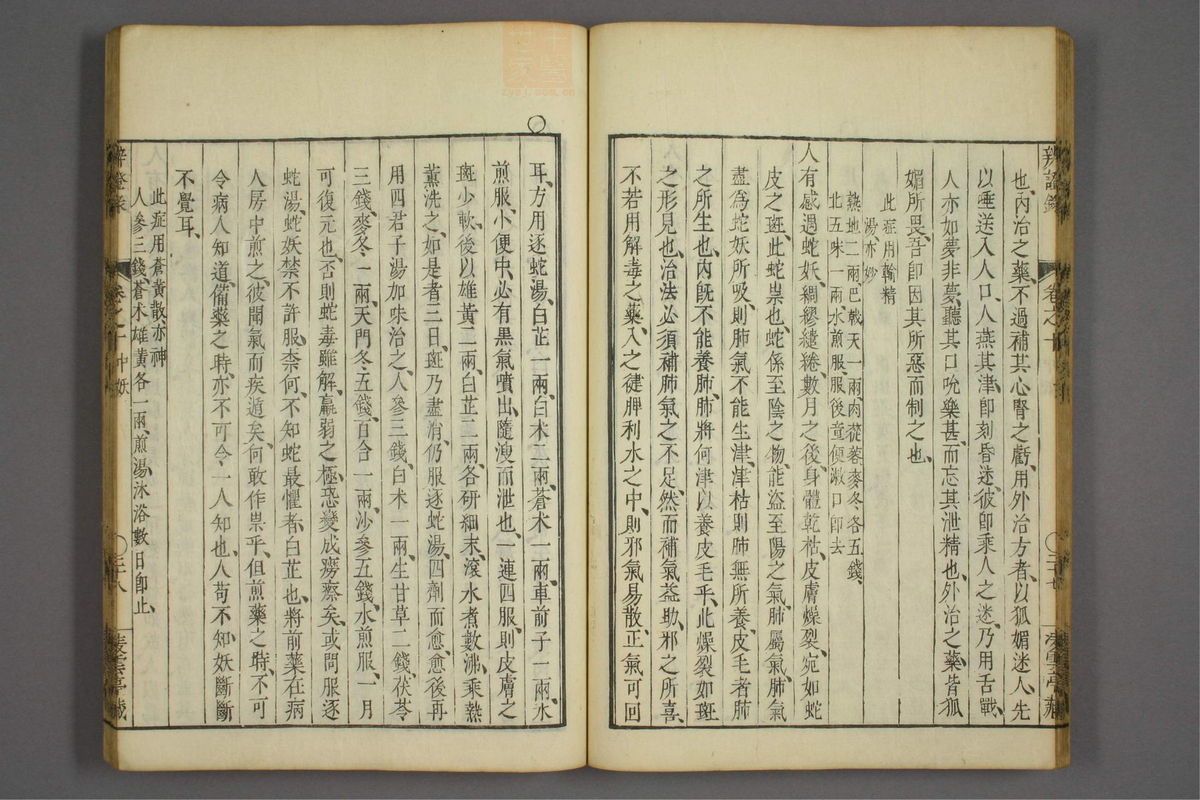 辨證錄
卷之十
二十七
也、內治之藥、不過補其心腎之虧、用外治方者、以狐媚迷人、先
以唾送入人口、人燕其津、卽刻昏迷、彼卽乘人之迷、乃用舌戰、
人亦如夢非夢、聽其口吮樂甚、而忘其泄精也、外治之藥、皆狐
媚所畏、吾卽因其所惡而制之也、
此症用輸精
湯亦妙
熟地二兩巴戟天一兩肉蓯蓉麥冬各五錢、
北五味一兩水煎服服後童便漱口卽去
人有感遇蛇妖、綢繆繾綣數月之後、身體乾枯、皮膚燥裂、宛如蛇
皮之斑、此蛇祟也、蛇係至陰之物、能盜至陽之氣、肺屬氣、肺氣
盡爲蛇妖所吸、則肺氣不能生津、津枯則肺無所養、皮毛者肺
之所生也、內旣不能養肺、肺將何津以養皮毛乎、此燥裂如斑
之形見也、治法必須補肺氣之不足、然而補氣益助邪之所喜、
不若用解毒之藥、入之健脾利水之中、則邪氣易散、正氣可回
耳、方用逐蛇湯、白芷一兩、白朮二兩、蒼朮一兩、車前子一兩、水
煎服、小便中、必有黑氣噴出、隨溲而泄也、一連四服、則皮膚之
斑少軟、後以雄黃二兩、白芷二兩、各研細末、滾水煮數沸、乘熱
薰洗之、如是者三日、斑乃盡消、仍服逐蛇湯、四劑而愈、愈後再
用四君子湯加味治之、人參三錢、白朮一兩、生甘草二錢、茯苓
三錢、麥冬一兩、天門冬五錢、百合一兩、沙參五錢、水煎服、一月
可復元也、否則蛇毒雖解、羸弱之極、恐變成癆瘵矣、或問服逐
蛇湯、蛇妖禁不許服、柰何、不知蛇最懼者、白芷也、將前藥在病
人房中煎之、彼聞氣而疾遁矣、何敢作祟乎、但煎藥之時、不可
令病人知道、備藥之時、亦不可令一人知也、人苟不知、妖斷斷
不覺耳、
此症用蒼黃散亦神
人參三錢蒼朮雄黃各一兩煎湯沐浴數日卽止、
卷之十
三十八